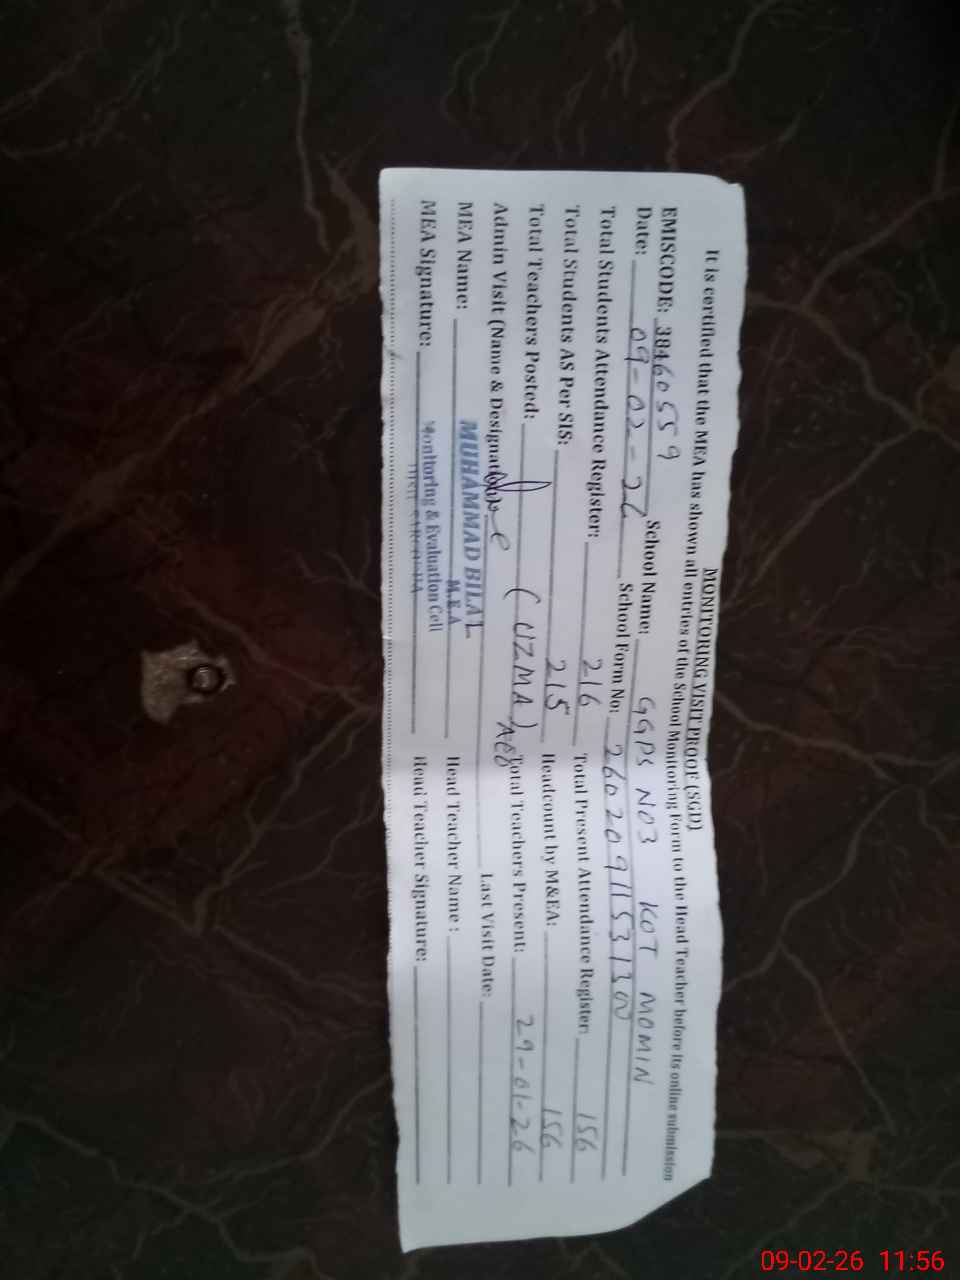 MONITORING VISIT PROOF (SGD)
It is certified that the MEA has shown all entries of the School Monitoring Form to the Head Teacher before its online submission
EMISCODE: 38460559 School Name: GGPS NO3 KOT MOMIN
Date: 09-02-26 School Form No: 260209115313
Total Students Attendance Register: 216 Total Present Attendance Register: 156
Total Students AS Per SIS: 215 Headcount by M&EA: 156
Total Teachers Posted: (UZMA) AEO Total Teachers Present: 29-01-26
Admin Visit (Name & Designation): Last Visit Date:
MEA Name: MUHAMMAD BILAL Head Teacher Name :
M.E.A
MEA Signature: Monitoring & Evaluation Cell Head Teacher Signature:
09-02-26 11:56